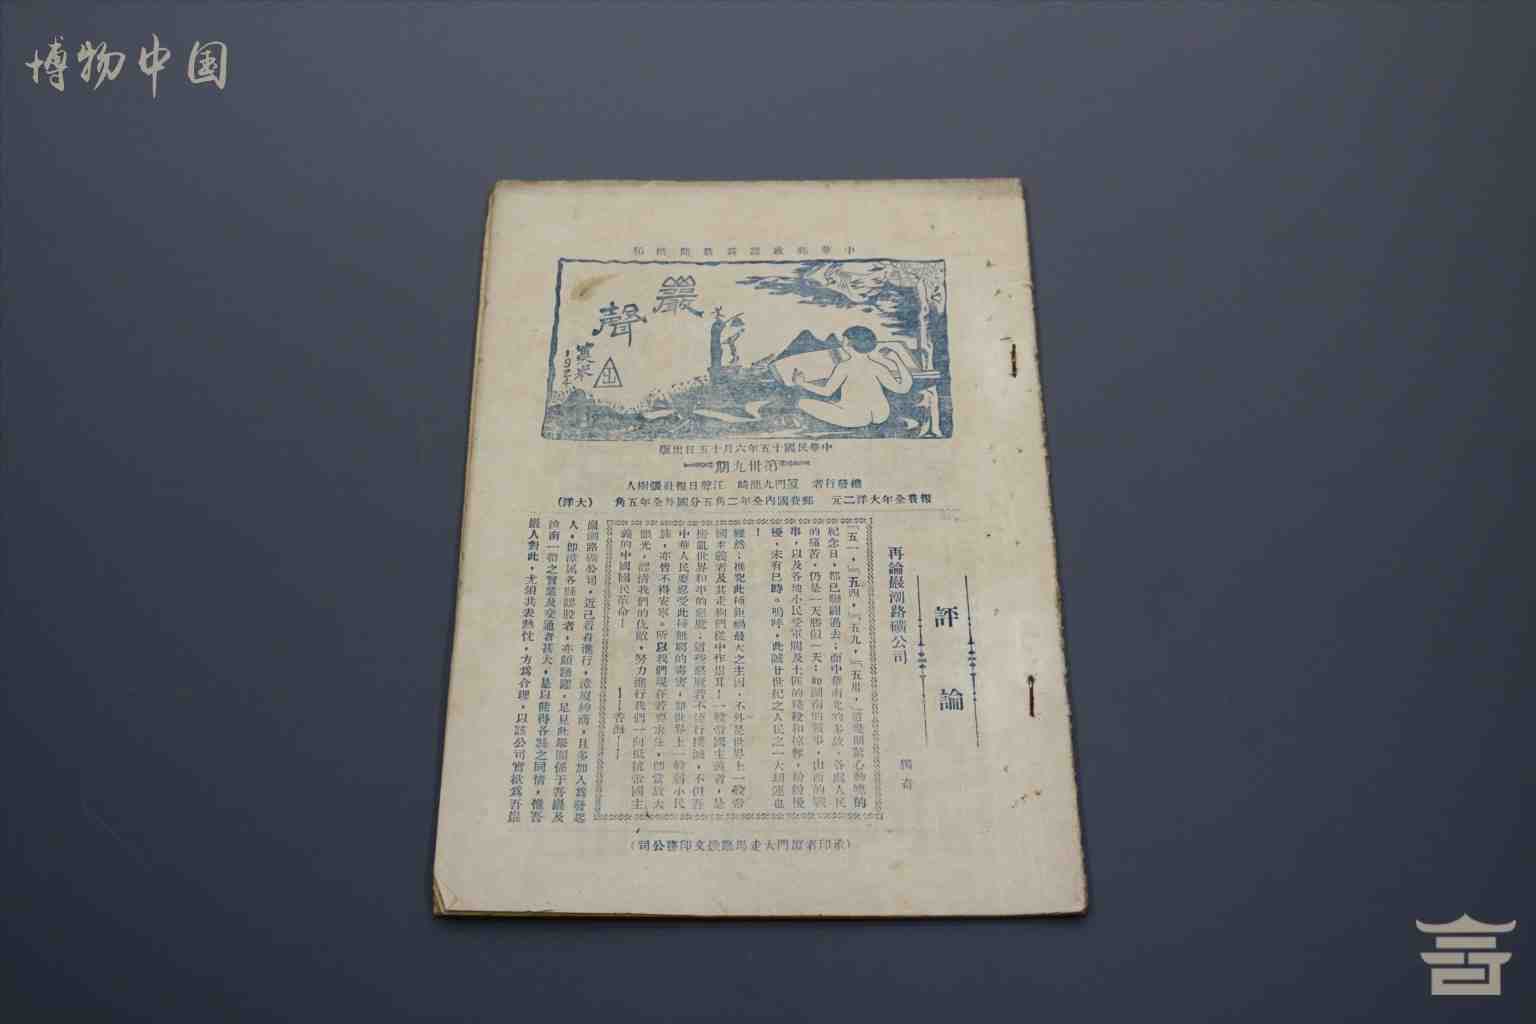 博物中国
中華郵政認爲新聞紙類
巖聲
1924
中華民國十五年六月十五日出版
第卅九期
總發行者 廈門九龍崎 江聲日報社張樹人
報費全年大洋二元 郵費國內全年二角五分國外全年五角 (大洋)
評論
再論巖潮路礦公司
獨奇
『五一,』『五四,』『五九,』『五卅,』
紀念日,都已
的痛苦,仍是一天勝似一天;如湖南的戰事,山西的戰
事,以及各地小民受軍閥及土匪的殘殺和掠奪,紛紛擾
擾,未有已時。嗚呼,此誠廿世紀之人民之一大刼運也
!
雖然;推究此種鉅禍最大之主因,不外是世界上一般帝
國主義者及其走狗們從中作祟耳!一般帝國主義者,是
擾亂世界和平的惡魔;這些惡魔若不從行撲滅,不但吾
中華人民要忍受此種無窮的毒害,卽世界上一般弱小民
族,亦皆不得安寧。所以我們現在若要求生,卽當放大
眼光,認清我們的仇敵,努力進行我們一向抵抗帝國主
義的中國國民革命!
巖潮路礦公司,近已着着進行,漳廈紳商,且多加入爲發起
人,卽漳屬各縣認股者,亦頗踴躍,足見此舉關係于吾巖及
汀南一帶之實業及交通者甚大,是以能得各縣之同情,惟吾
巖人對此,尤須共表熱忱,方爲合理,以該公司實欲爲吾巖
(承印者廈門大走馬路 文印務公司)